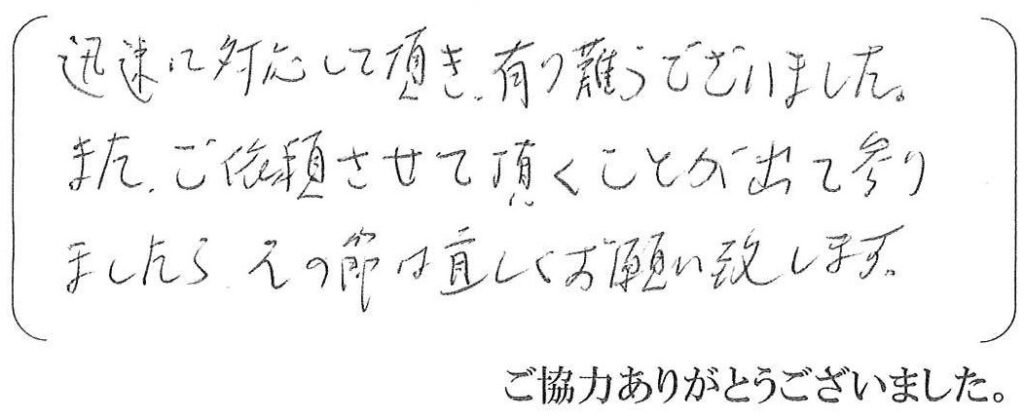 迅速に対応して頂き、有り難うございました。
また、ご依頼させて頂くことが出て参り
ましたら、その節は宜しくお願い致します。
ご協力ありがとうございました。